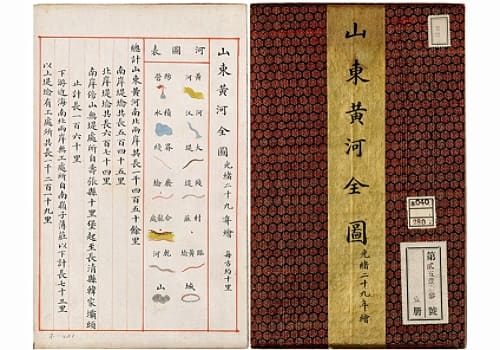 山東黃河全圖 光緒二十九年繪 每方約十里
河圖表
黃河
大堤
防營
積水
山
城
總計山東黃河南北兩岸共長一千四百五十餘里
南岸堤埝共長五百四十五里
北岸堤埝共長六百七十四里
南岸傍山無堤處所自壽張縣十里堡起至長清縣韓家壩頭
止計長一百六十里
下游近海南北兩岸無工處所自南嶺子薄莊以下計長七十三里
以上堤埝有工處所共長一千二百一十九里
山東黃河全圖 光緒二十九年繪
a040
280
第
號
冊